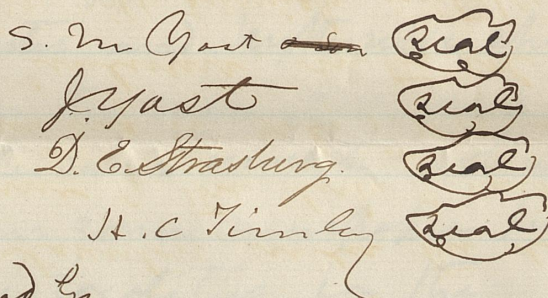 S. M Yost & Son Seal
J. Yost Seal
D. E. Strasburg. Seal
H. C Tinsley Seal